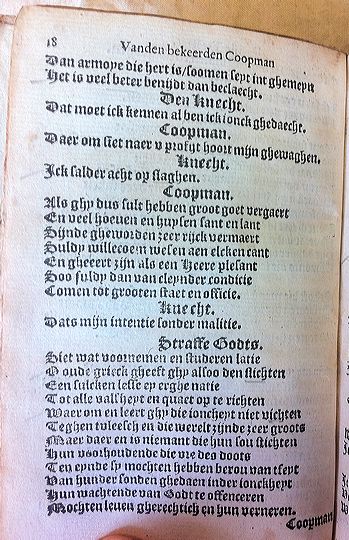 18 Vanden bekeerden Coopman
Dan armoye die hert is/soomen seyt int ghemeyn
Het is veel beter benijdt dan beclaecht.
Den Knecht.
Dat moet ick kennen al ben ick jonck ghedaecht.
Coopman.
Daer om siet naer u profijt hoort mijn ghewaghen.
Knecht.
Ick salder acht op slaghen.
Coopman.
Als ghy dus sult hebben groot goet vergaert
En veel hoeuen en huysen sant en lant
Sijnde gheworden zeer rijck vermaert
Suldy willecoem wesen aen elcken cant
En gheeert zijn als een Heere plesant
Soo suldy dan van cleynder conditie
Comen tot grooten staet en officie.
Knecht.
Dats mijn intentie sonder malitie.
Straffe Godts.
Siet wat voornemen en studeren latie
O oude grieck gheeft ghy alsoo den stichten
Een sulcken lesse ey erghe natie
Tot alle valscheyt en quaet op te richten
Waer om en leert ghy die joncheyt niet vichten
Teghen tvleesch en die werelt zijnde zeer groots
Maer daer en is niemant die hun sou stichten
Hun voorhoudende die vre des doots
Ten eynde sy mochten hebben berou van tseyt
Van hunder sonden ghedaen inder jonckheyt
Hun wachtende van Godt te offenceren
Mochten leuen gherechtich en hun verneren.
Coopman